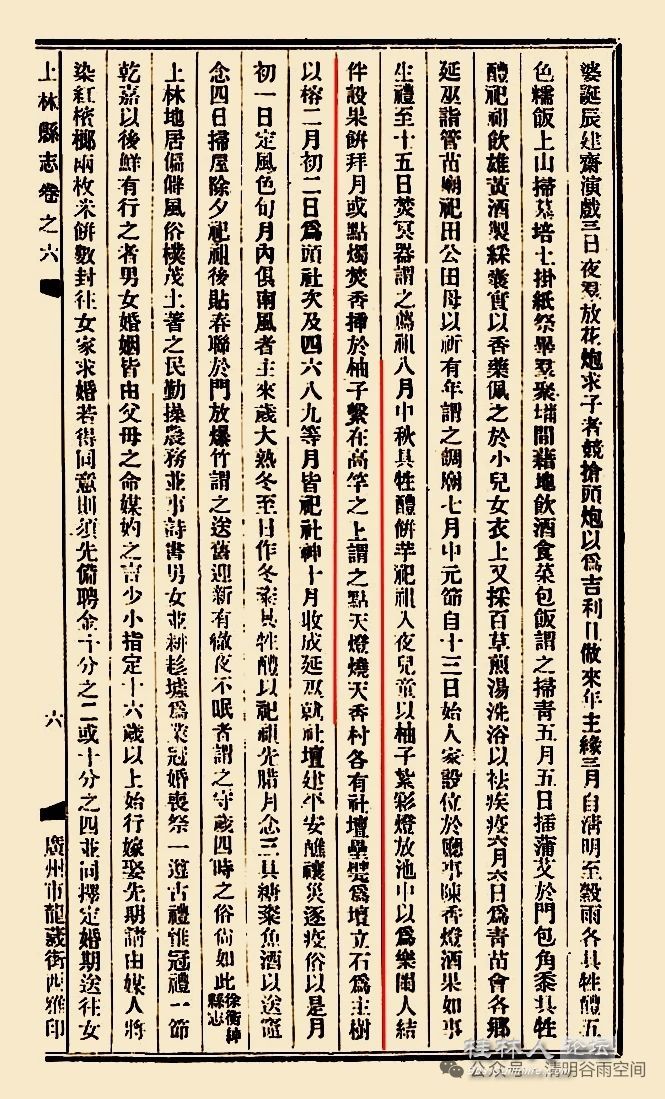 婆誕辰建齋演戲三日夜翌放花炮求子者競搶頭炮以爲吉利且做來年主緣三月自淸明至穀雨各具牲醴五
色糯飯上山掃墓培土掛紙祭畢羣聚埔間藉地飲酒食菜包飯謂之掃靑五月五日插蒲艾於門包角黍具牲
醴祀祖飲雄黃酒製綵囊實以香藥佩之於小兒女衣上又採百草煎湯洗浴以祛疾疫六月六日爲靑苗會各鄉
延巫詣管苗廟祀田公田母以祈有年謂之鬮廟七月中元節自十三日始人家設位於廳事陳香燈酒果如事
生禮至十五日焚冥器謂之薦祖八月中秋具牲醴餅芋祀祖入夜兒童以柚子紮彩燈放池中以爲樂閨人結
伴設果餅拜月或點燭焚香揷於柚子繫在高竿之上謂之點天燈燒天香村各有社壇壘甓爲壇立石爲主樹
以榕二月初二日爲頭社次及四六八九等月皆祀社神十月收成延巫就社壇建平安醮禳災逐疫俗以是月
初一日定風色旬月內俱南風者主來歲大熟冬至日作冬粢具牲醴以祀祖先臘月念三具糖粢魚酒以送竈
念四日掃屋除夕祀祖後貼春聯於門放爆竹謂之送舊迎新有徹夜不眠者謂之守歲四時之俗尙如此徐衡紳縣志
上林地居偏僻風俗樸茂土著之民勤操農務並事詩書男女並耕趁墟爲業冠婚喪祭一遵古禮惟冠禮一節
乾嘉以後鮮有行之者男女婚姻皆由父母之命媒妁之言少小指定十六歲以上始行嫁娶先期請由媒人將
染紅檳榔兩枚米餅數封往女家求婚若得同意則須先備聘金十分之二或十分之四並同擇定婚期送往女
上林縣志卷之六
六
廣州市龍藏街西雅印
桂林人論壇
公众号·清明谷雨空间